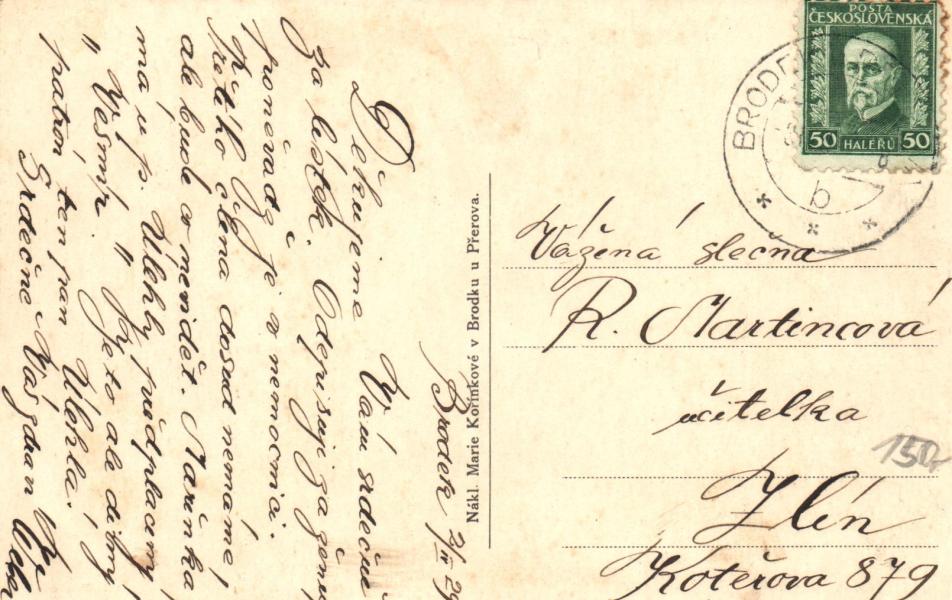 POŠTA
ČESKOSLOVENSKÁ
50 HALÉŘŮ 50
BRODE
b
Brodek 2/II 29
Děkujeme Vám srdečně
za lístek. Odepisuji za ženu
poněvadž je v nemocnici.
Třetího člena dosud nemáme,
ale bude co nevidět. Mařenka
má u p. Úlehly předplacený
„Vesmír“. Je to ale divný
patron ten pan Úlehla.
Srdečně Vás zdraví
Nákl. Marie Kořínkové v Brodku u Přerova.
Vážená slečna
R. Martincová
učitelka
Zlín
Kotěrova 879
150,-